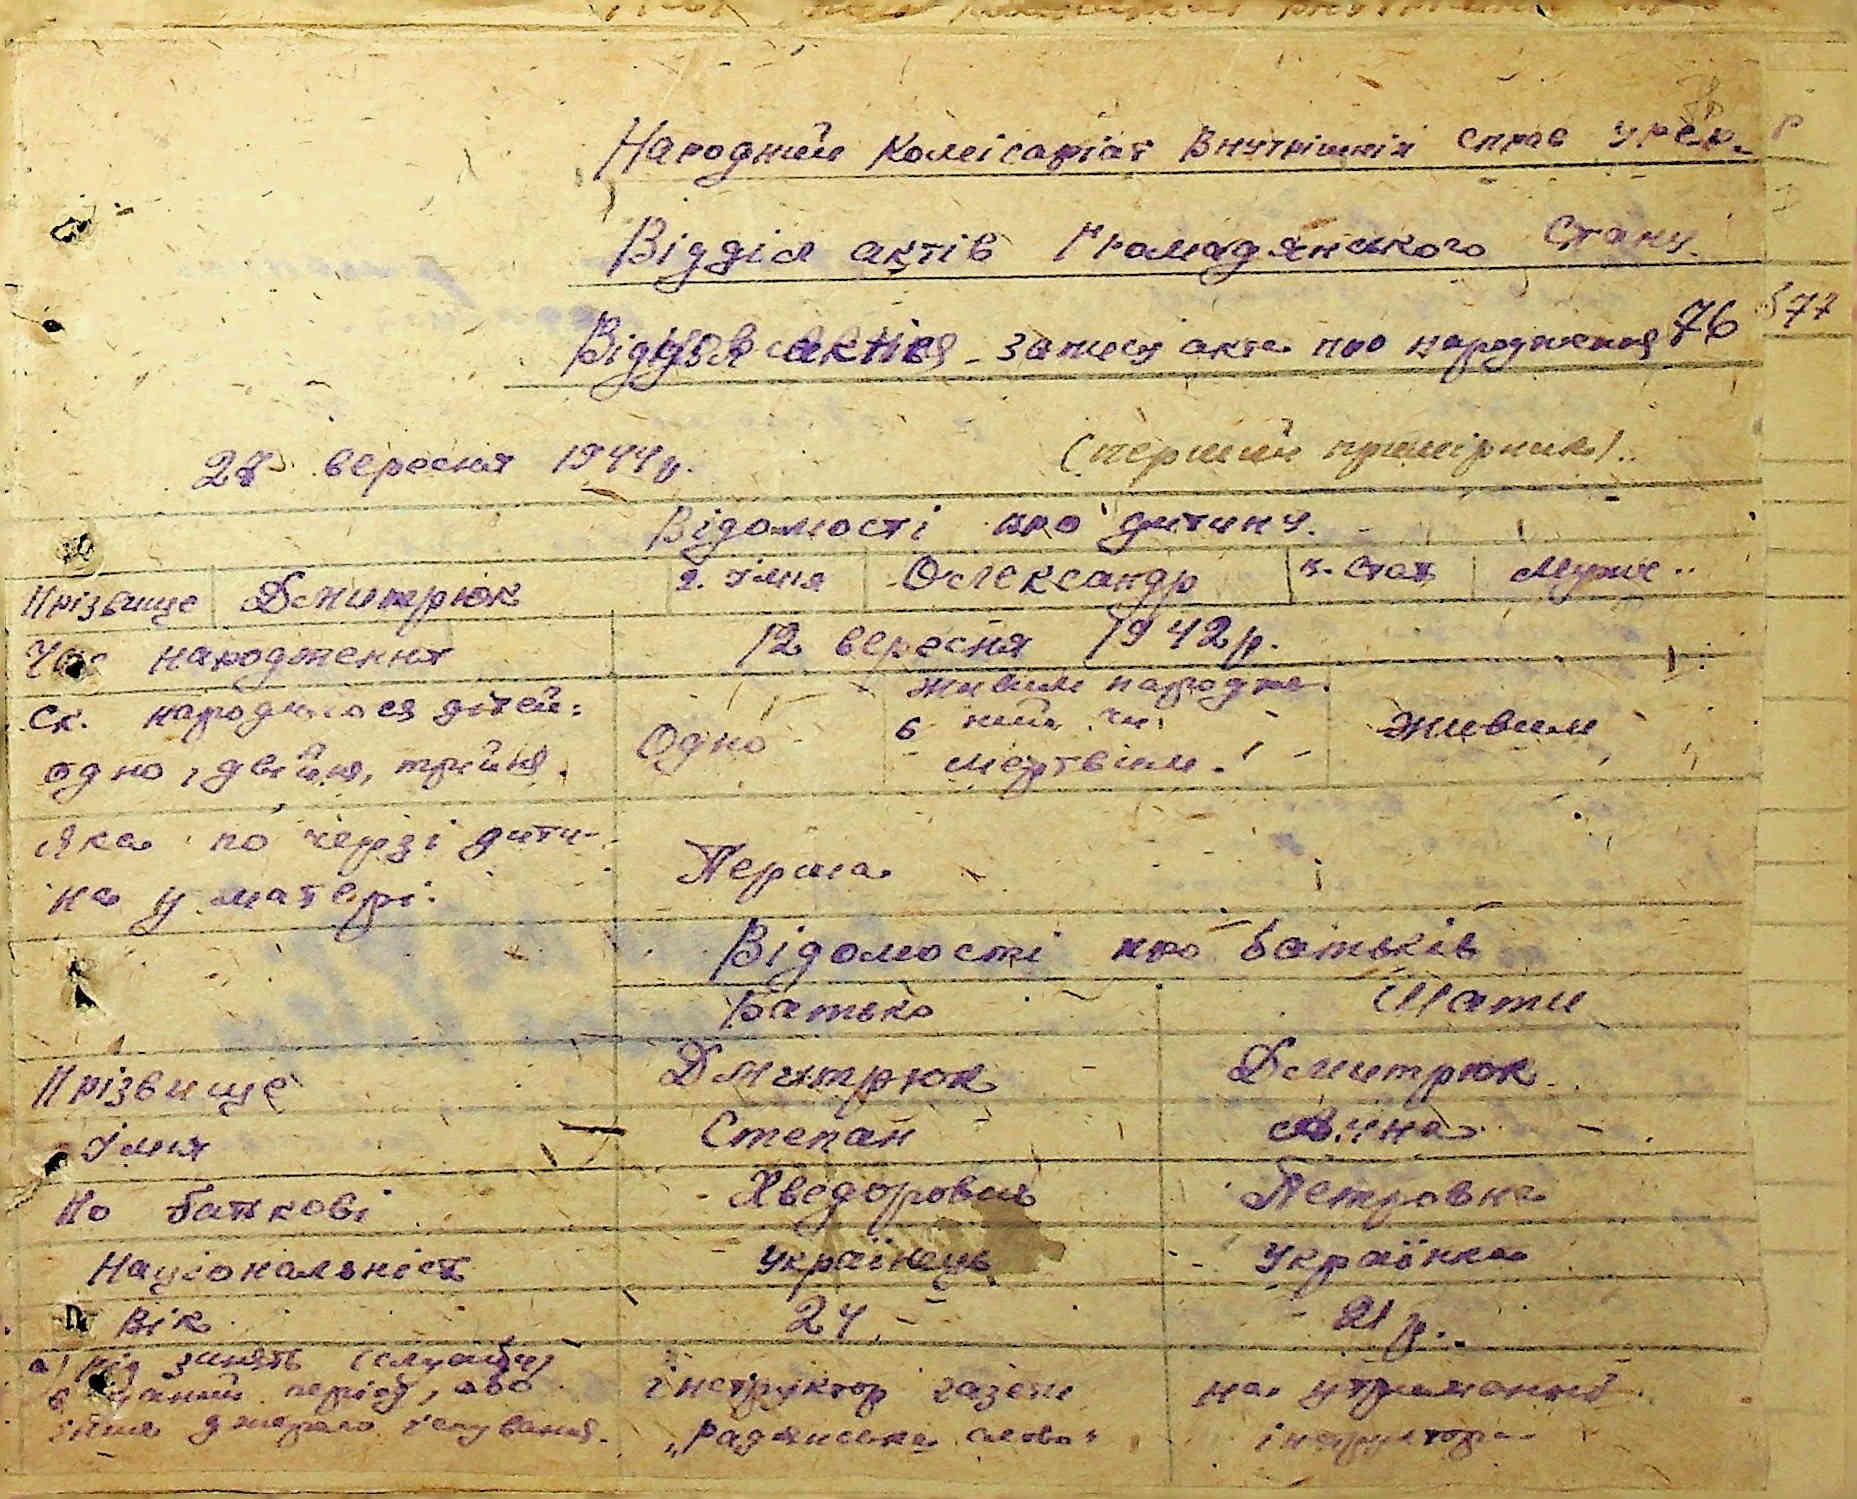 Народній Комісаріат Внутрішніх Справ УРСР.
Відділ актів Громадянського Стану.
запису акта про народження 76
77
27 вересня 1944р.
(перший примірник)..
Відомості про дитину.
Прізвище Дмитрюк 2. Імня Олександр 3. Стат Мужс..
Час народження 12 вересня 1942р.
Ск. народилося дітей:
одно, двійня, трийня.
Одно
6
живим народже-
ний чи
мертвим.
живим
Яка по черзі дити-
на у матері.
Перша
Відомості про батьків
Батько Мати
Прізвище Дмитрюк Дмитрюк
Імня Степан Анна
По баткові Хведорович Петровна
Національніст Українець Українка
Вік 24. 21 р.
а) Під занять (служби)
в даний період, або
інше джерело існування.
інструктор газети
„Радянське слово"
на утриманні
інструктора